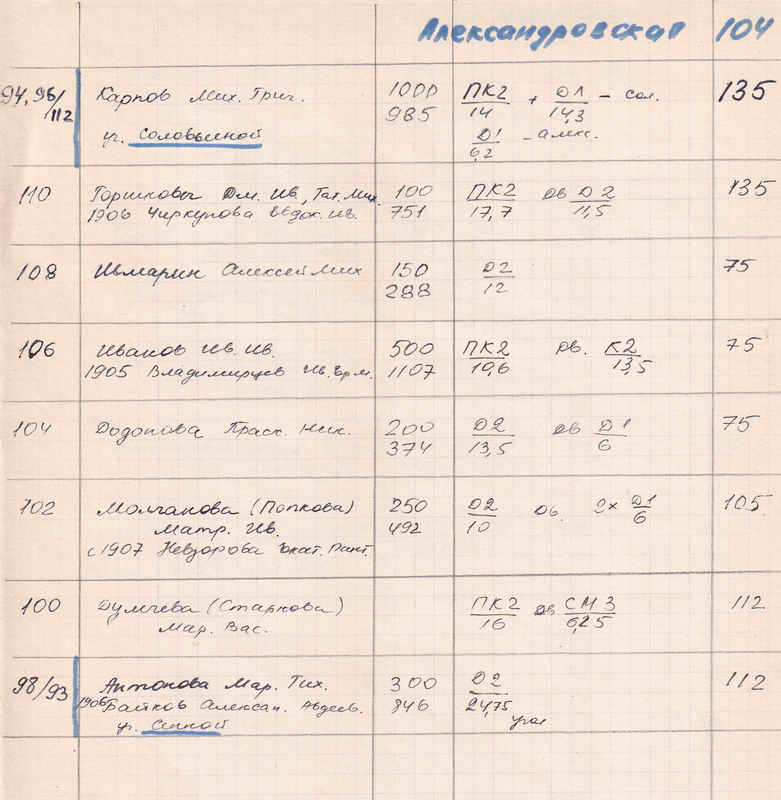 Александровская 104
94, 96/112 Карпов Мих. Григ. 1000 ПК2/14 + Д1/14,3 - сол. 135
985
уг. Соловьиной Д1/6,2 - алек.
110 Горшковы Дм. Ив., Тат. Мих. 100 ПК2/17,7 дв Д2/11,5 135
1906 Чиркунова Евдок. Ив. 751
108 Ивмарин Алексей Мих 150 Д2/12 75
288
106 Иванов Ив. Ив. 500 ПК2/10,6 дв. К2/13,5 75
1905 Владимирцев Ив. Ерм. 1107
104 Додонова Праск. Ник. 200 Д2/13,5 дв Д1/6 75
374
102 Молчанова (Попкова) 250 Д2/10 дв. 2х Д1/6 105
Матр. Ив. 492
с 1907 Невзорова Екат.
100 Думчева (Старкова) ПК2/16 дв СМ3/6,25 112
Мар. Вас.
98/93 Антонова Мар. Тих. 300 Д2/24,75 112
1906 Байков Алексан. Авдеев. 846
уг. Сенной угол